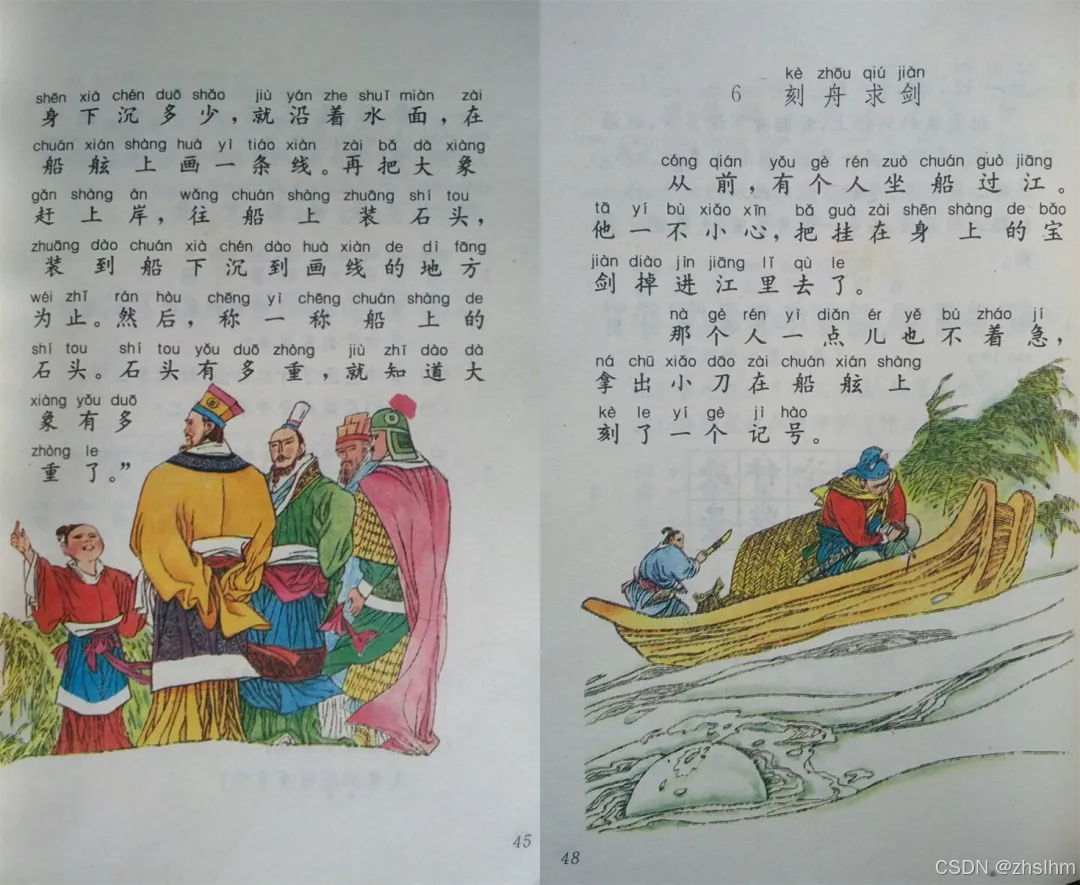 shēn xià chén duō shǎo jiù yán zhe shuǐ miàn zài
身下沉多少，就沿着水面，在
chuán xián shàng huà yì tiáo xiàn zài bǎ dà xiàng
船舷上画一条线。再把大象
gǎn shàng àn wǎng chuán shàng zhuāng shí tou
赶上岸，往船上装石头，
zhuāng dào chuán xià chén dào huà xiàn de dì fāng
装到船下沉到画线的地方
wéi zhǐ rán hòu chēng yì chēng chuán shàng de
为止。然后，称一称船上的
shí tou shí tou yǒu duō zhòng jiù zhī dào dà
石头。石头有多重，就知道大
xiàng yǒu duō
象有多
zhòng le
重了”
45
kè zhōu qiú jiàn
6 刻舟求剑
cóng qián yǒu gè rén zuò chuán guò jiāng
从前，有个人坐船过江。
tā yí bù xiǎo xīn bǎ guà zài shēn shàng de bǎo
他一不小心，把挂在身上的宝
jiàn diào jìn jiāng lǐ qù le
剑掉进江里去了。
nà gè rén yì diǎn ér yě bù zháo jí
那个人一点儿也不着急，
ná chū xiǎo dāo zài chuán xián shàng
拿出小刀在船舷上
kè le yí gè jì hào
刻了一个记号。
48
CSDN @zhslhm